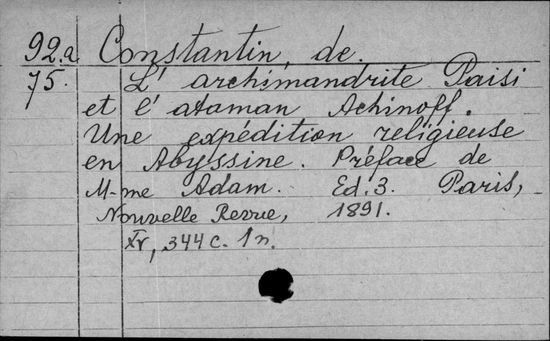 92.a Constantin, de.
75. L' archimandrite Paisi
et l' ataman Achinoff.
Une expédition religieuse
en Abyssine. Préface de
M-me Adam. Ed. 3. Paris,
Nouvelle Revue, 1891.
XV, 344 c. 1 п.